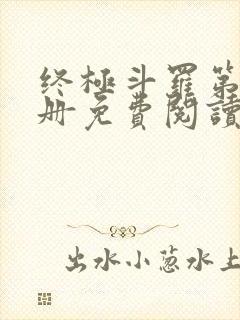 终極斗羅第
册免費閱讀
出水小葱水上